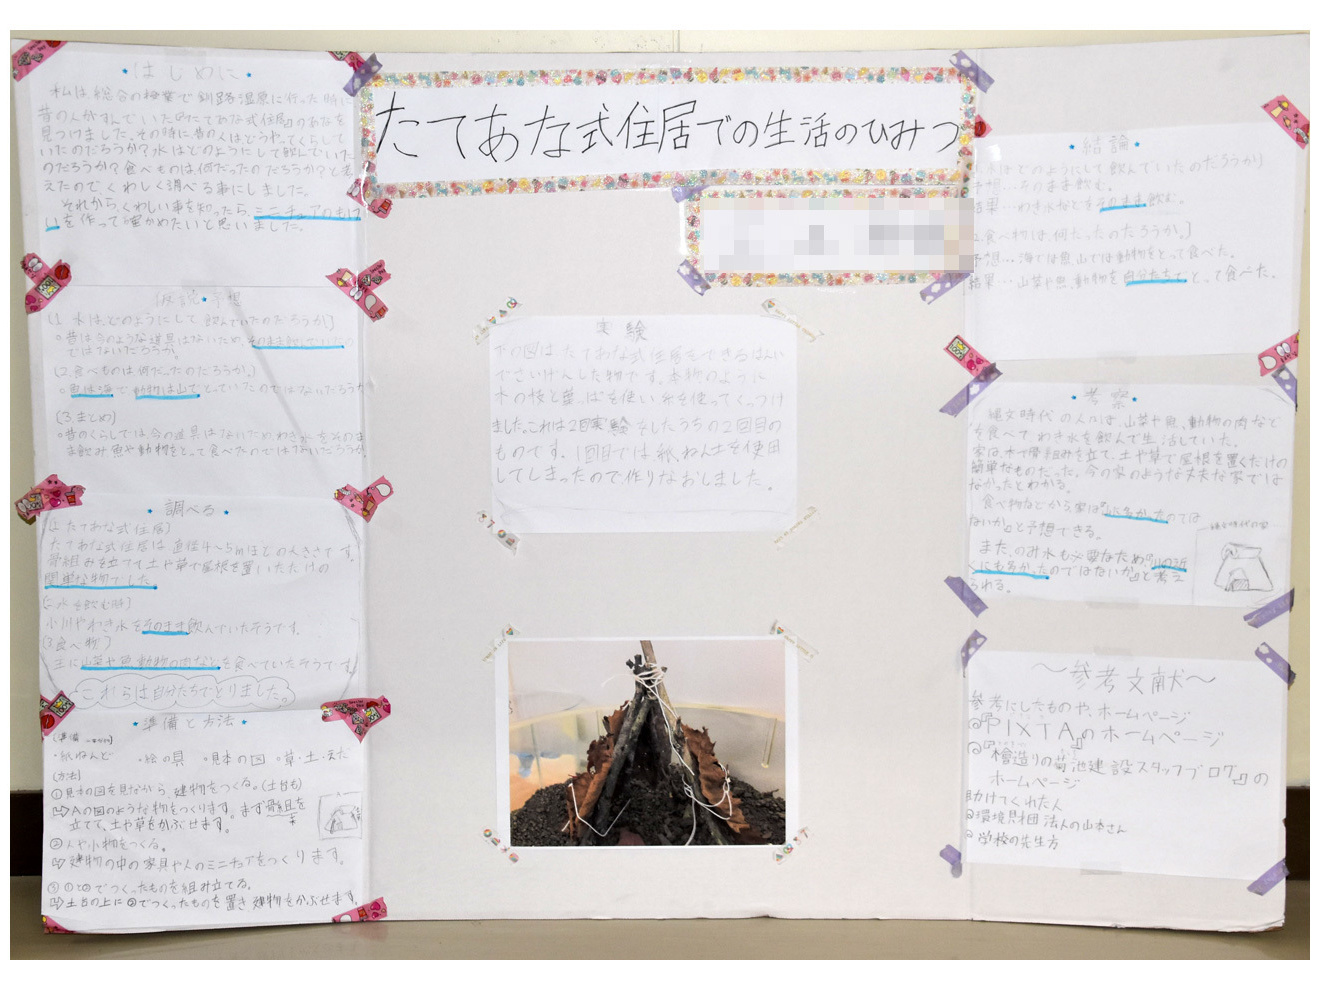 はじめに
私は、総合の授業で釧路湿原に行った時に
昔の人がすんでいた『たてあな式住居』のあなを
見つけました。その時に、昔の人はどうやってくらして
いたのだろうか？水はどのようにして飲んでいた
のだろうか？食べものは何だったのだろうか？と考
えたので、くわしく調べる事にしました。
それからくわしい事を知ったら、ミニチュアのもけ
いを作って確かめたいと思いました。
仮説・予想
(1 水は、どのようにして飲んでいたのだろうか。)
○昔は今のような道具はないため、そのまま飲んでいたの
ではないだろうか。
(2.食べものは何だったのだろうか。)
○魚は海で動物は山でとっていたのではないだろうか
(3.まとめ)
○昔のくらしでは今の道具はないためわき水をそのま
ま飲み魚や動物をとって食べたのではないだろうか
調べる
(1 たてあな式住居)
たてあな式住居は直径4~5mほどの大きさです。
骨組みを立てて土や草で屋根を置いただけの
簡単な物でした。
(2 水を飲む時)
小川やわき水をそのまま飲んでいたそうです。
(3 食べ物)
主に山菜や魚、動物の肉などを食べていたそうです。
これらは自分たちでとりました。
準備と方法
(準備
・紙ねんど ・絵の具 ・見本の図 ・草・土・えだ
(方法)
①見本の図を見ながら、建物をつくる。(土台も)
⇨Aの図のような物をつくります。まず骨組を
立てて、土や草をかぶせます。
②人や小物をつくる。
⇨建物の中の家具や人のミニチュアをつくります。
③①と②でつくったものを組み立てる。
⇨土台の上に②でつくったものを置き建物をかぶせます。
たてあな式住居での生活のひみつ
実験
下の図は、たてあな式住居をできるはんい
でさいげんした物です。本物のように
木の枝と葉っぱを使い糸を使ってくっつけ
ました。これは2回実験をしたうちの2回目の
ものです。1回目では紙ねん土を使用
してしまったので作りなおしました。
結論
水はどのようにして飲んでいたのだろうか)
予想…そのまま飲む。
結果…わき水などをそのまま飲む。
2.食べ物は、何だったのだろうか。)
予想…海では魚、山では動物をとって食べた。
結果…山菜や魚、動物を自分たちでとって食べた。
考察
縄文時代の人々は、山菜や魚、動物の肉など
を食べて、わき水を飲んで生活していた。
家は、木で骨組みを立て、土や草で屋根を置くだけの
簡単なものだった。今の家のような丈夫な家では
なかったとわかる。
食べ物などから家は『山の近くだったのでは
ないか』と予想できる。
また、のみ水も必要なため『川の近
くにも多かったのではないか』と考え
られる。
縄文時代の家
～参考文献～
参考にしたものや、ホームページ
◎『PIXTA』のホームページ
◎『檜造りの菊池建設スタッフブログ』の
ホームページ
助けてくれた人
◎環境財団法人の山本さん
◎学校の先生方